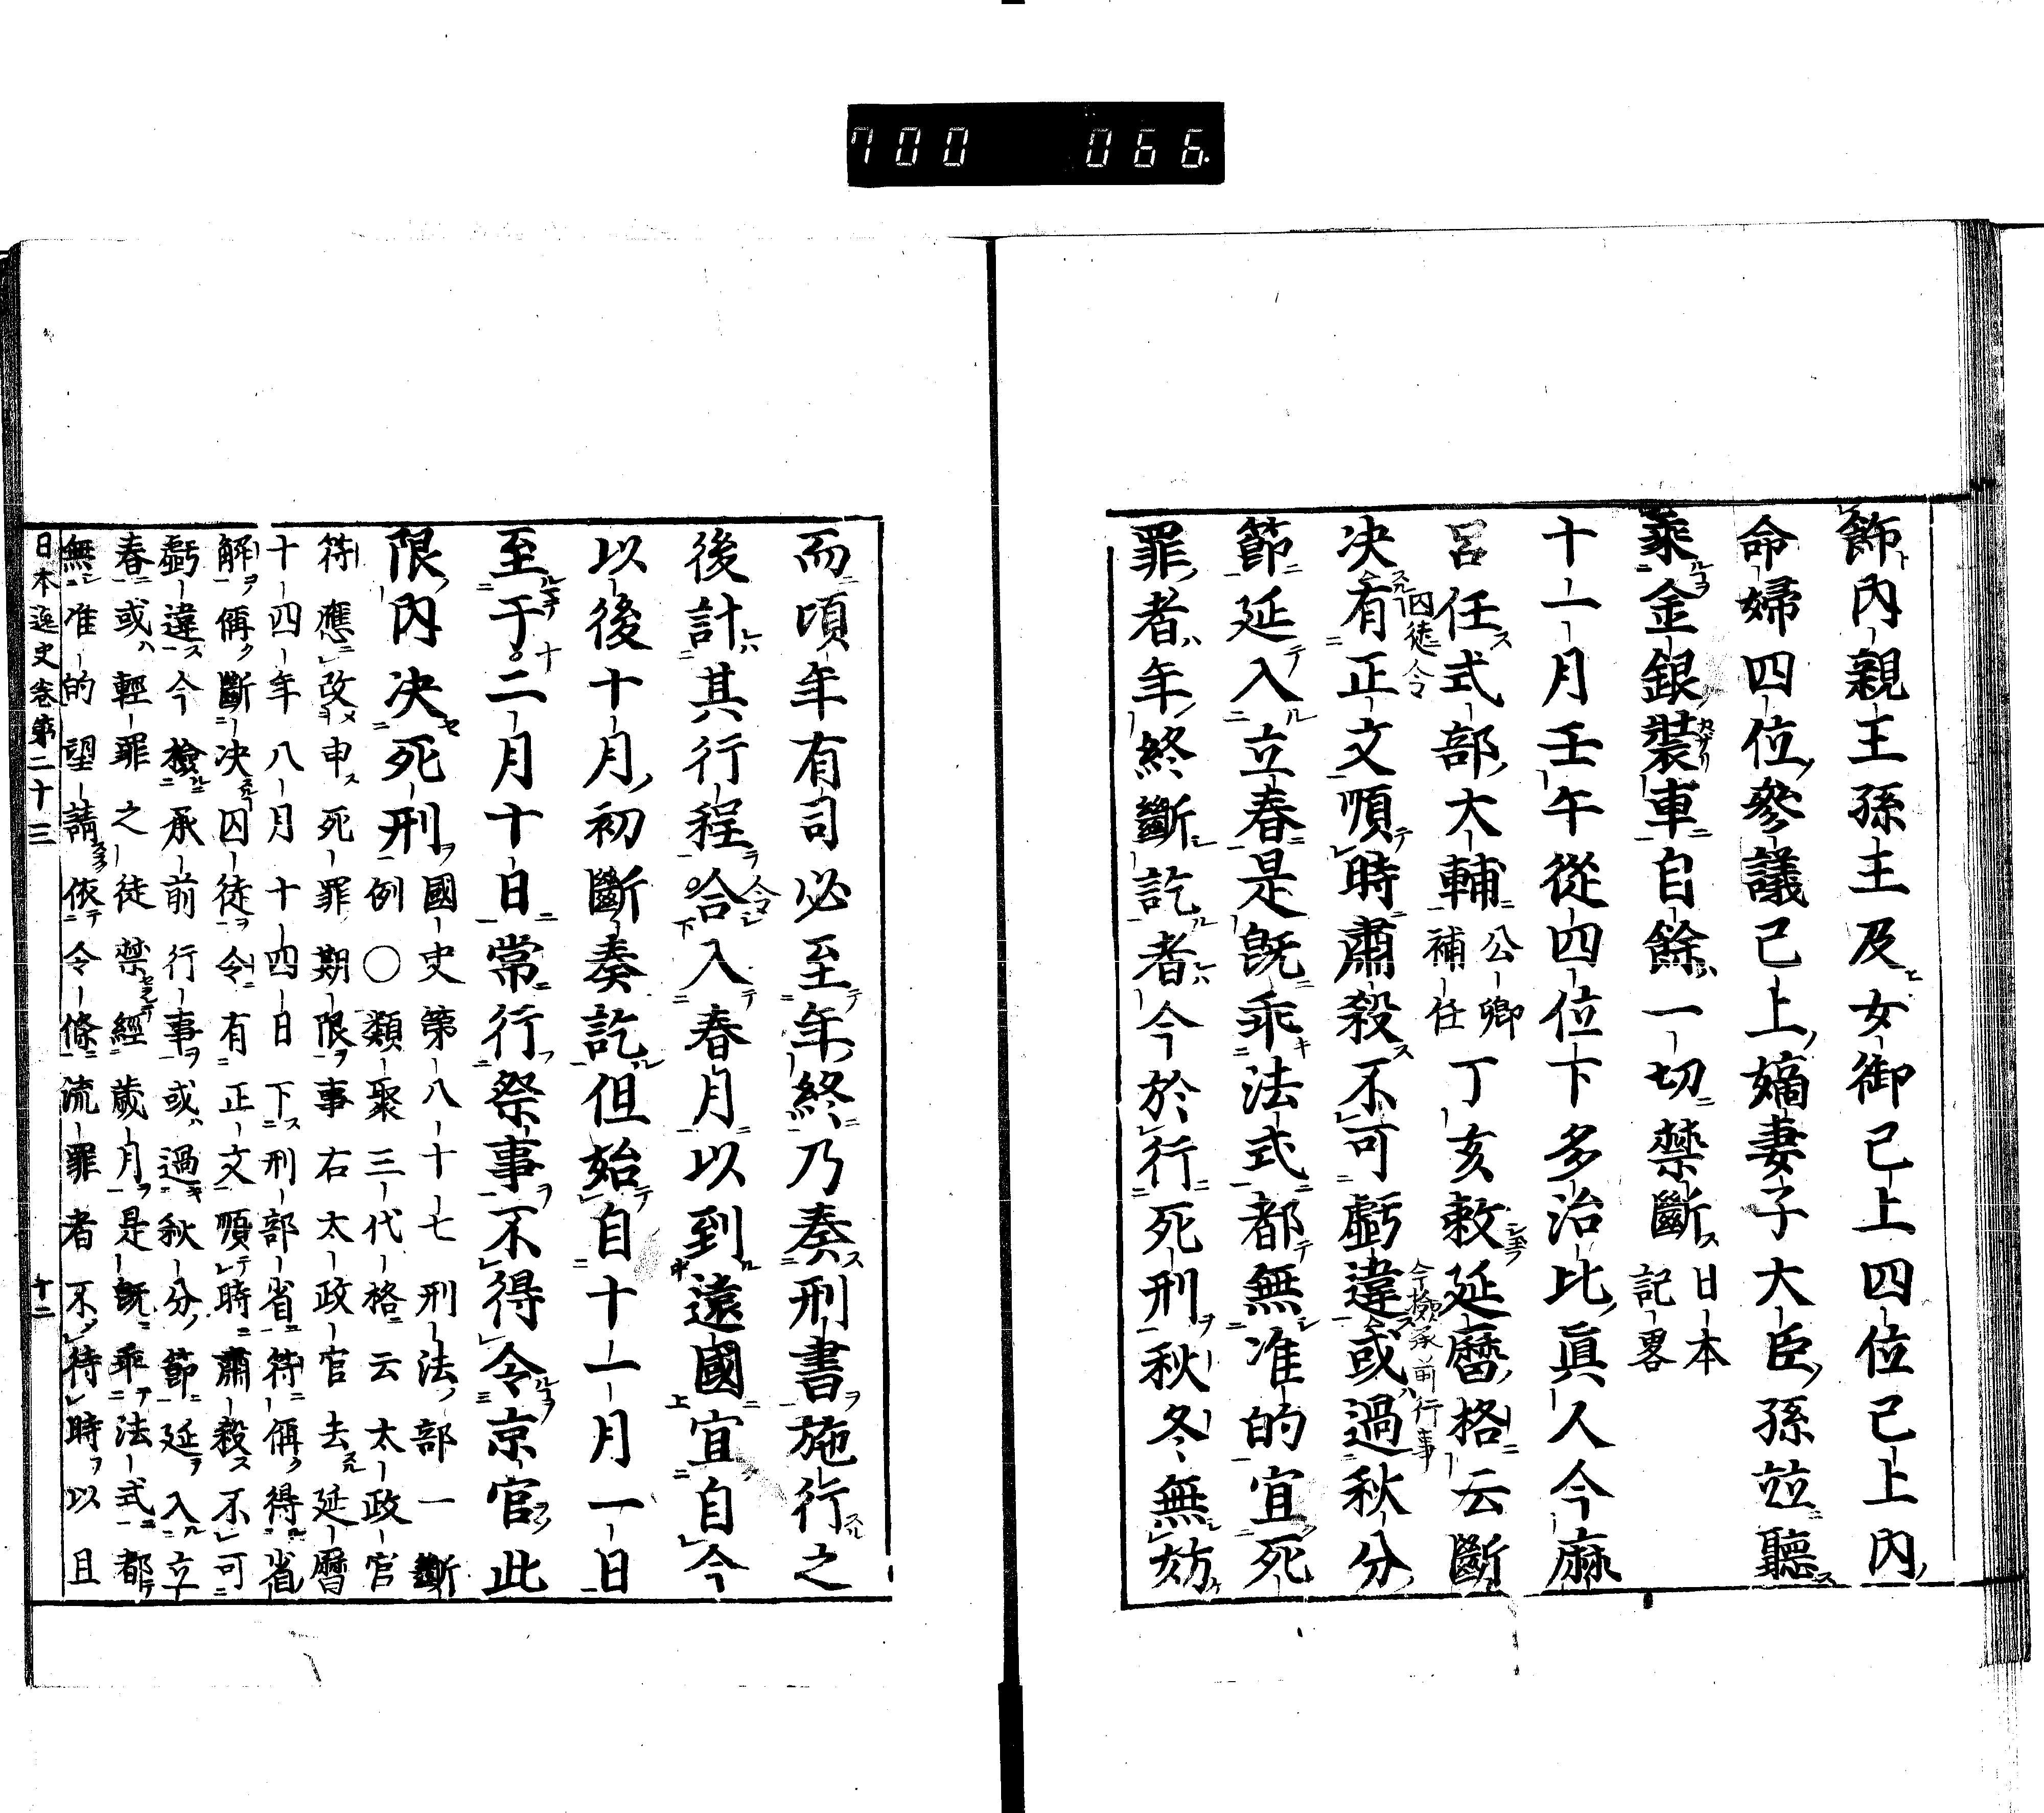 700 066
飾內親王孫王及女御已上四位已上內
命婦四位參議已上嫡妻子大臣孫竝聽
乘金銀裝車自餘一切禁斷日本記畧
十一月壬午從四位下多治比眞人今麻
呂任式部大輔公卿補任丁亥敕延曆格云斷
囚徒令
今檢承前行事
决有正文順時肅殺不可虧違或過秋分
節延入立春是旣乖法式都無准的宜死
罪者年終斷訖者今於行死刑秋冬無妨
而頃年有司必至年終乃奏刑書施行之
後計其行程合入春月以到遠國宜自今
令
以後十月初斷奏訖但始自十一月一日
至于二月十日常行祭事不得令京官此
十
限內决死刑國史第八十七刑法部一斷
例○類聚三代格云太政官
符應改申死罪期限事右太政官去延曆
十四年八月十四日下刑部省符偁得省
解偁斷决囚徒令有正文順時肅殺不可
虧違今檢承前行事或過秋分節延入立
春或輕罪之徒禁經歲月是旣乖法式都
無准的望請依令條流罪者不待時以且
日本逸史卷第二十三 十二